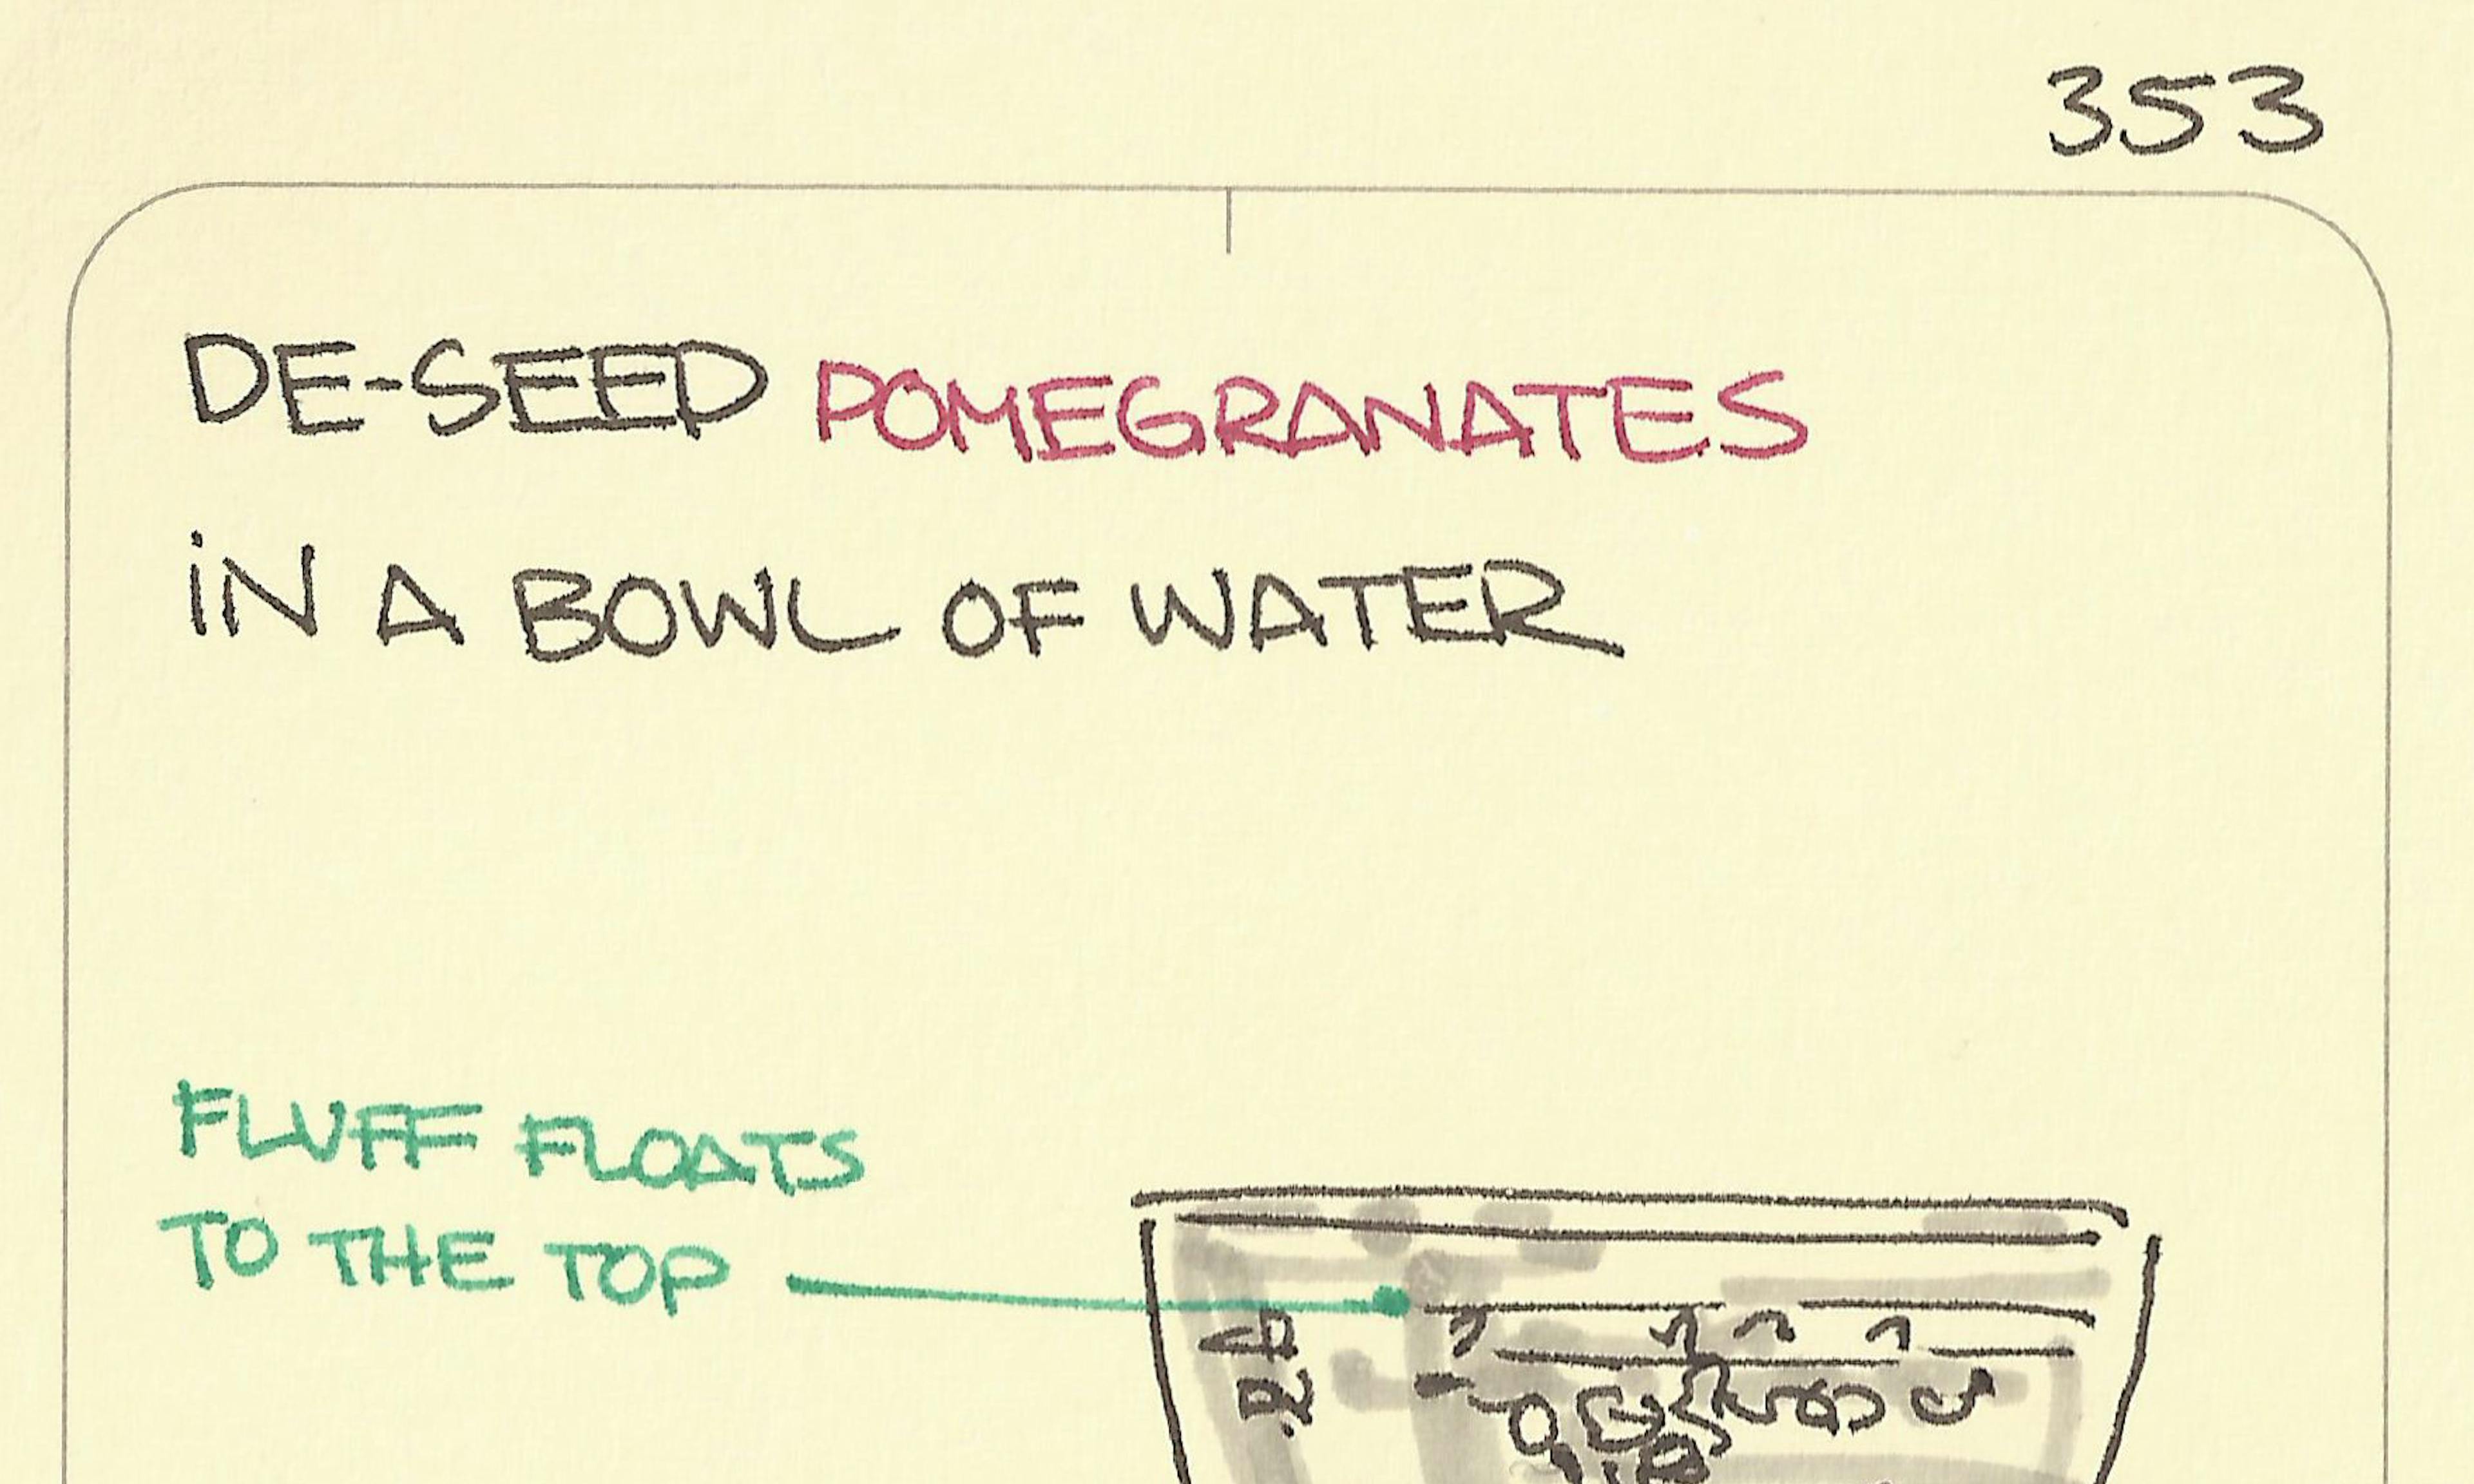 353
DE-SEED POMEGRANATES
IN A BOWL OF WATER
FLUFF FLOATS
TO THE TOP